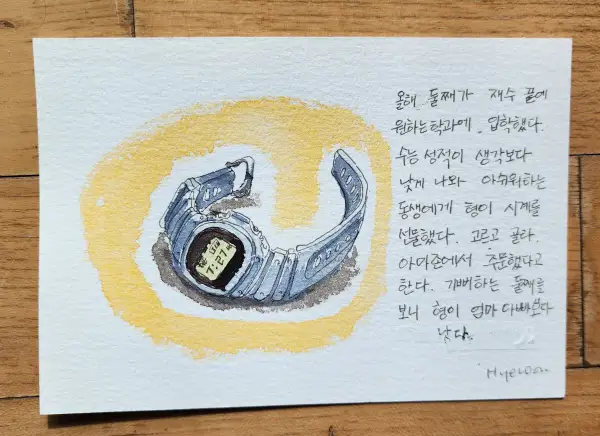 올해 둘째가 재수 끝에
원하는 학과에 입학했다.
수능 성적이 생각보다
낮게 나와 아쉬워하는
동생에게 형이 시계를
선물했다. 고르고 골라.
아마존에서 주문했다고
한다. 기뻐하는 둘째를
보니 형이 엄마 아빠보다
낫다.
7:27